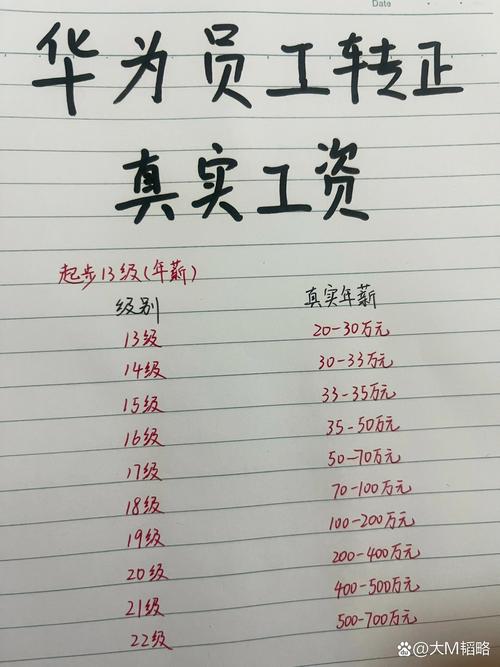 Date
华为员工转正
真实工资
起步13级(年薪)
级别 真实年薪
13级 20-30万元
14级 30-33万元
15级 33-35万元
16级 35-50万元
17级 50-70万元
18级 70-100万元
19级 100-200万元
20级 200-400万元
21级 400-500万元
22级 500-700万元
@大M韬略